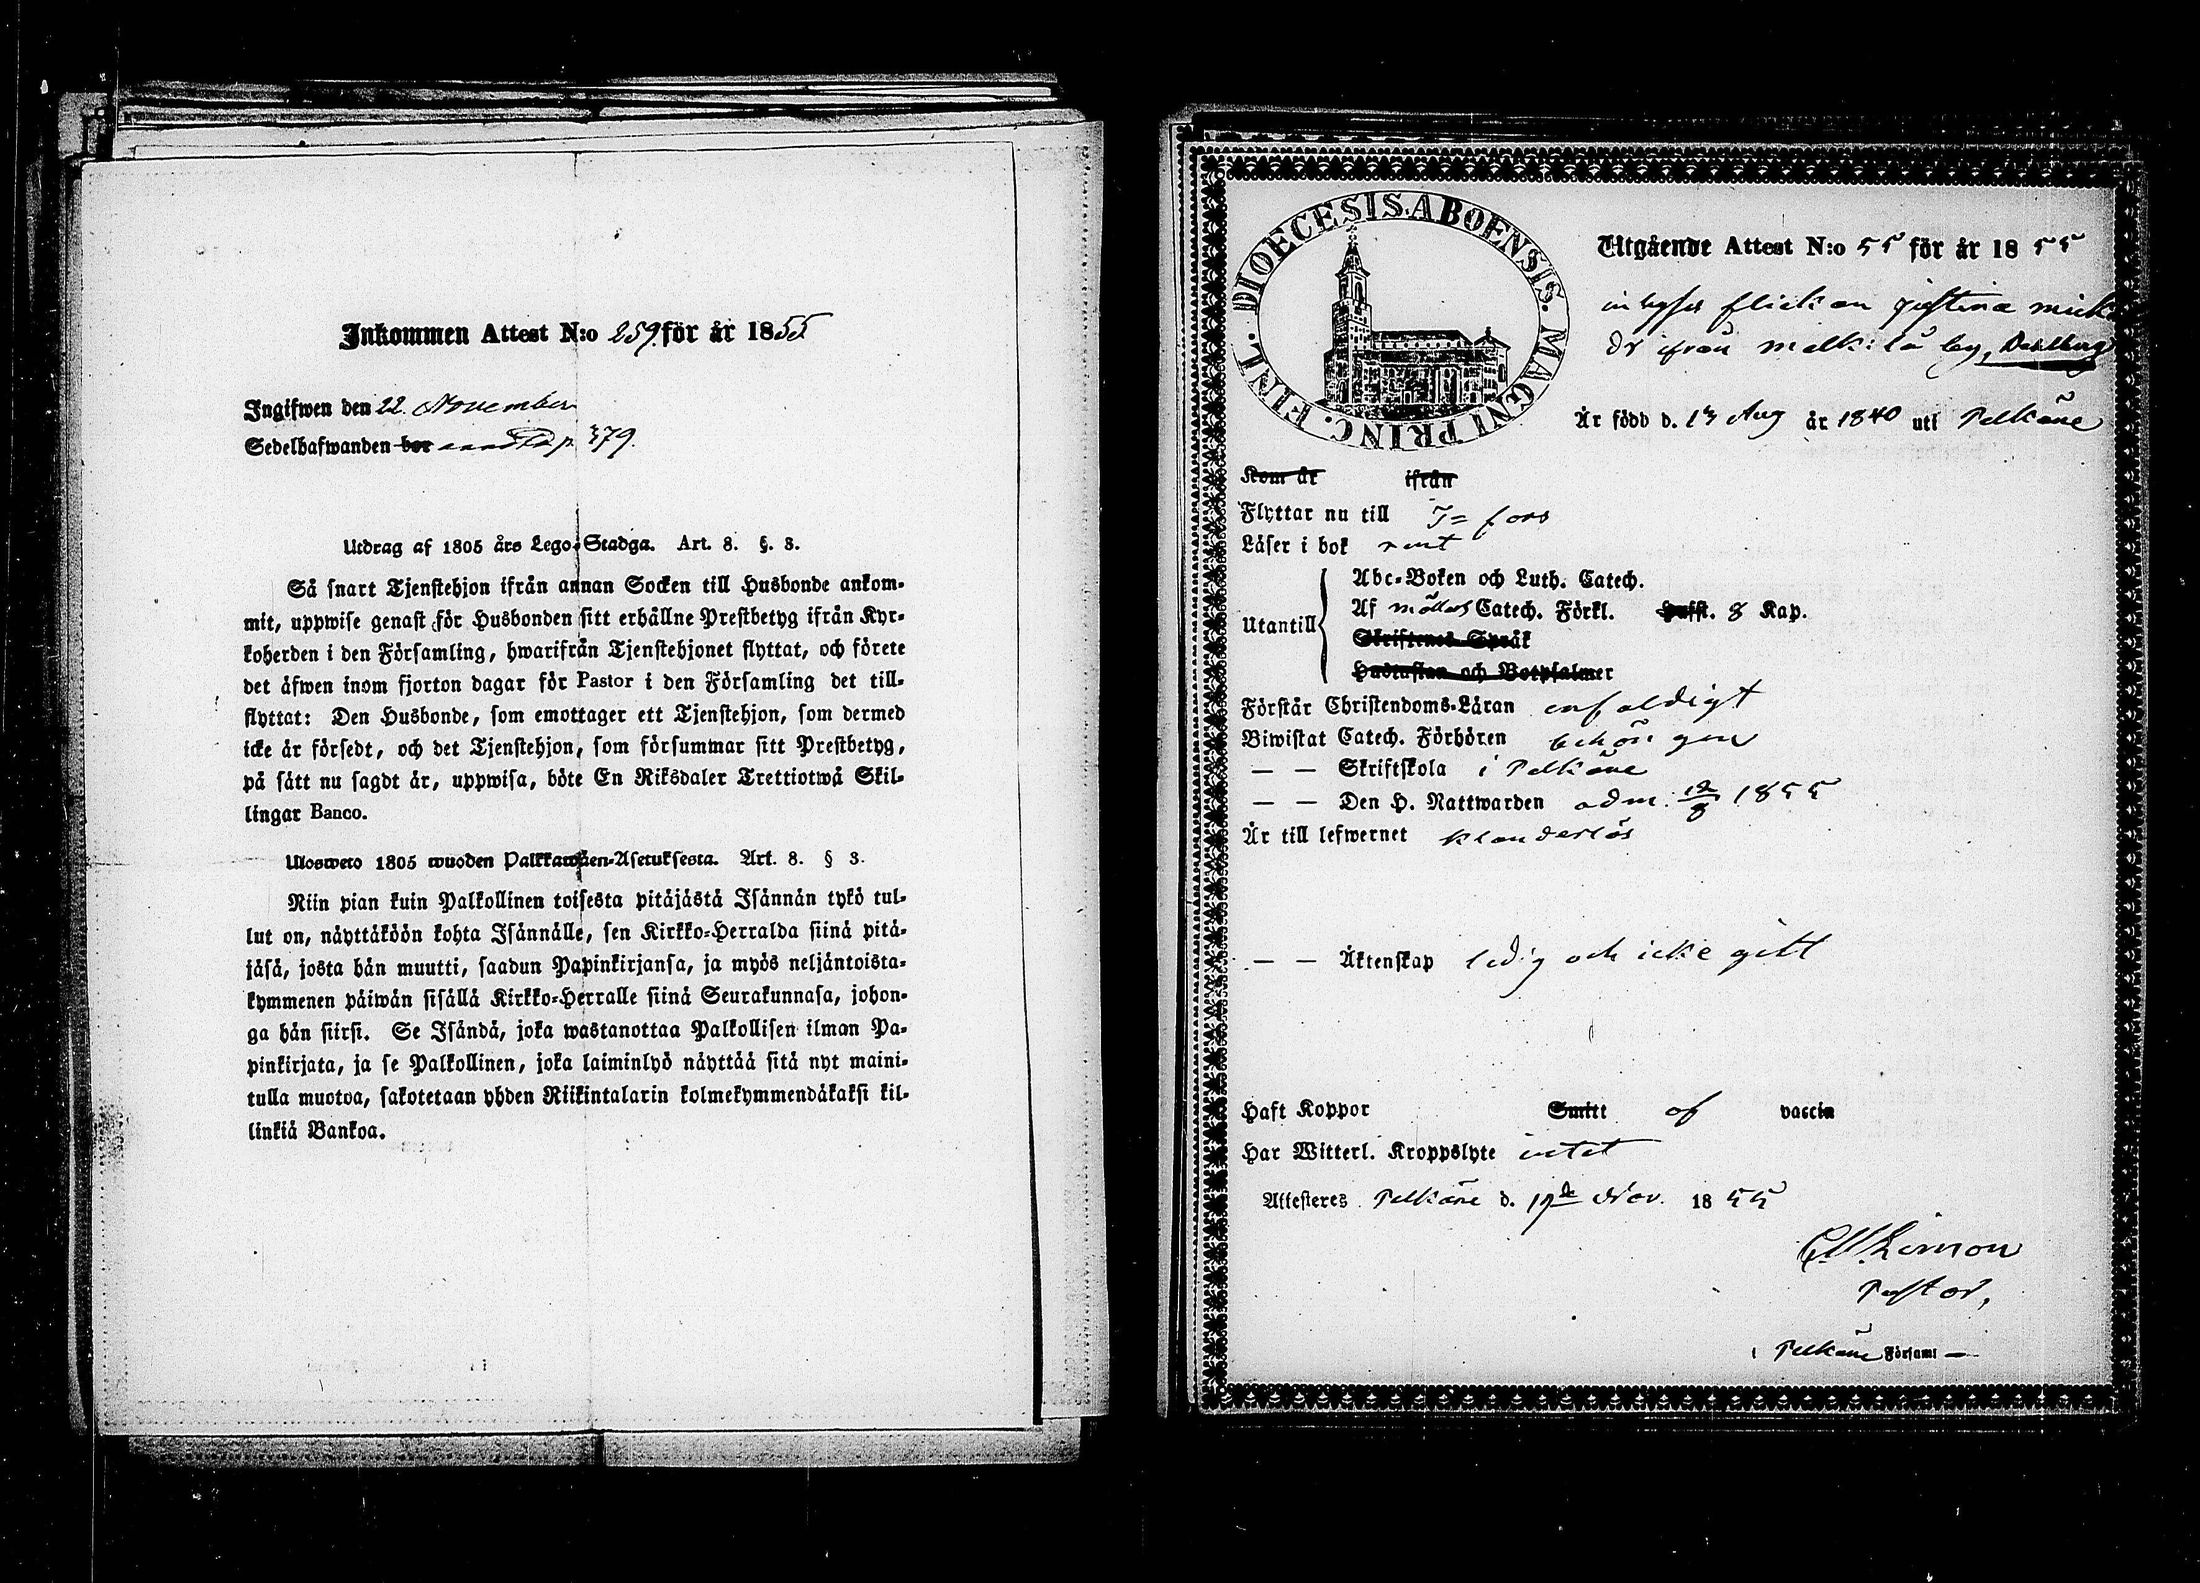 Inkommen Attest N:o 259. för år 1855
Ingifwen den 22. November
Sedelhafwanden bor p. 379.
Utdrag af 1805 års Lego-Stadga. Art. 8. §. 3.
Så snart Tjenstehjon ifrån annan Socken till Husbonde ankom-
mit, uppwise genast för Husbonden sitt erhållne Prestbetyg ifrån Kyr-
koherden i den Församling, hwarifrån Tjenstehjonet flyttat, och förete
det äfwen inom fjorton dagar för Pastor i den Församling det till-
flyttat: Den Husbonde, som emottager ett Tjenstehjon, som dermed
icke är försedt, och det Tjenstehjon, som försummar sitt Prestbetyg,
på sätt nu sagdt är, uppwisa, böte En Riksdaler Trettiotwå Skil-
lingar Banco.
Ulosweto 1805 wuoden Palkkawäen-Asetuksesta. Art. 8. § 3.
Niin pian kuin Palkollinen toisesta pitäjästä Isännän tykö tul-
lut on, näyttäköön kohta Isännälle, sen Kirkko-Herralda siinä pitä-
jäsä, josta hän muutti, saadun Papinkirjansa, ja myös neljäntoista-
kymmenen päiwän sisällä Kirkko-Herralle siinä Seurakunnasa, johon-
ga hän siirsi. Se Isändä, joka wastanottaa Palkollisen ilman Pa-
pinkirjata, ja se Palkollinen, joka laiminlyö näyttää sitä nyt maini-
tulla muotoa, sakotetaan yhden Riikintalarin kolmekymmendäkaksi kil-
linkiä Bankoa.
DIOECESIS. ABOENSIS. MAGNI PRINC. FINL.
Utgående Attest N:o 55 för år 1855
inhyses flickan Justina Mick
dr ifrån Mälkilä by, Dahlberg
Är född d. 13 Aug år 1840 uti Pelkäne
Kom år ifrån
Flyttar nu till T=fors
Läser i bok rent
Abc-Boken och Luth. Catech.
Utantill Af Möllers Catech. Förkl. Husst. 8 Kap.
Skriftenes Språk
Hustaflan och Botpsalmer
Förstår Christendoms-Läran enfaldigt
Biwistat Catech. Förhören behörigen
— — Skriftskola i Pelkäne
— — Den H. Nattwarden adm. 12/8 1855
Är till lefwernet klanderlös
— — Äktenskap ledig och icke gift
Haft Koppor Smitt af vaccin
Har Witterl. Kroppslyte intet
Attesteres Pelkäne d. 17de Nov. 1855
Limon
Pastor,
i Pelkäne Församl —